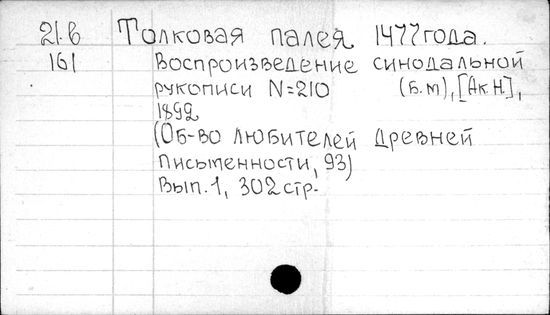 21.б Толковая палея 1477 года.
161 Воспроизведение синодальной
рукописи N=210 (б.м), [Ак.Н.],
1892
(Об-во любителей древней
письменности, 93)
Вып.1, 302 стр.